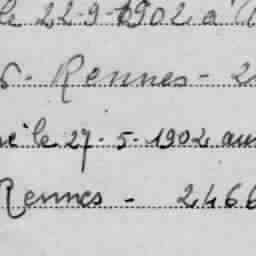 le 22-9-1902 à
6. Rennes - 2
le 27-5-1902 au
Rennes - 2466